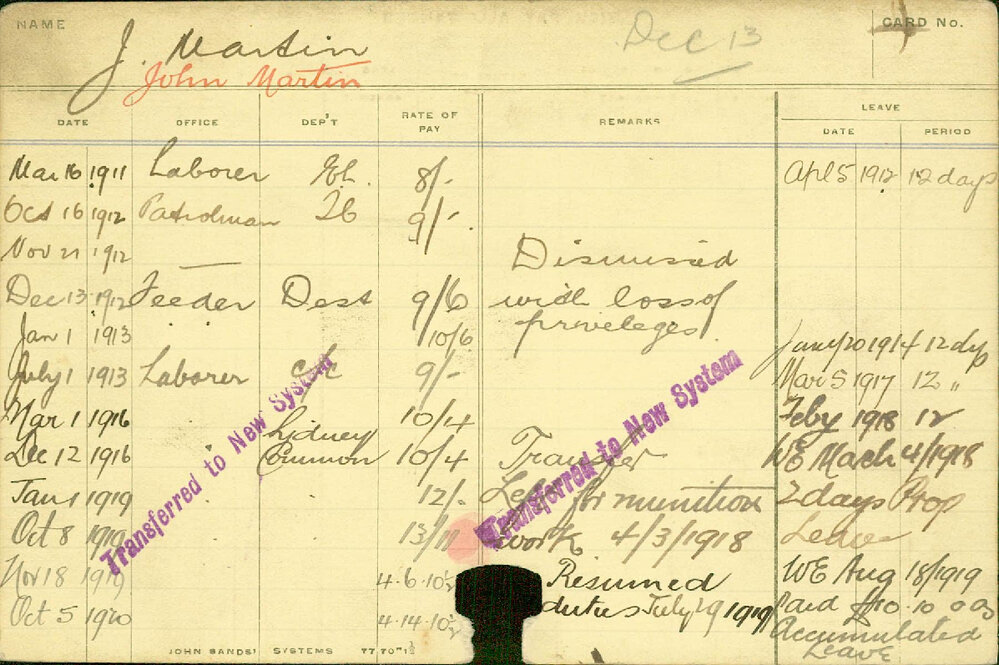 NAME J. Martin Dec 13 CARD No.
John Martin
LEAVE
DATE OFFICE DEP'T RATE OF PAY REMARKS DATE PERIOD
Mar 16 1911 Laborer 8/- Apl 5 1912 12 days
Oct 16 1912 Patrolman 9/-
Nov 21 1912 — Dismissed
Dec 13 1912 Feeder Dest 9/6 with loss of
Jan 1 1913 10/6 privileges
July 1 1913 Laborer 9/- 20 1914 12 dys
Mar 5 1917 12 "
Mar 1 1916 10/4 Feby 1918 12
Dec 12 1916 Sidney Common 10/4 Transfer WE Mach 4/1918
Jan 1 1919 12/- Left for munition 2 days Prop
Oct 8 1919 13/11 work 4/3/1918 Leave
Nov 18 1919 4.6.10½ Resumed WE Aug 18/1919
Oct 5 1920 4.14.10½ duties July 29 1919 Paid £10.10.0 as
Accumulated
Leave
Transferred to New System
Transferred to New System
JOHN SANDS' SYSTEMS